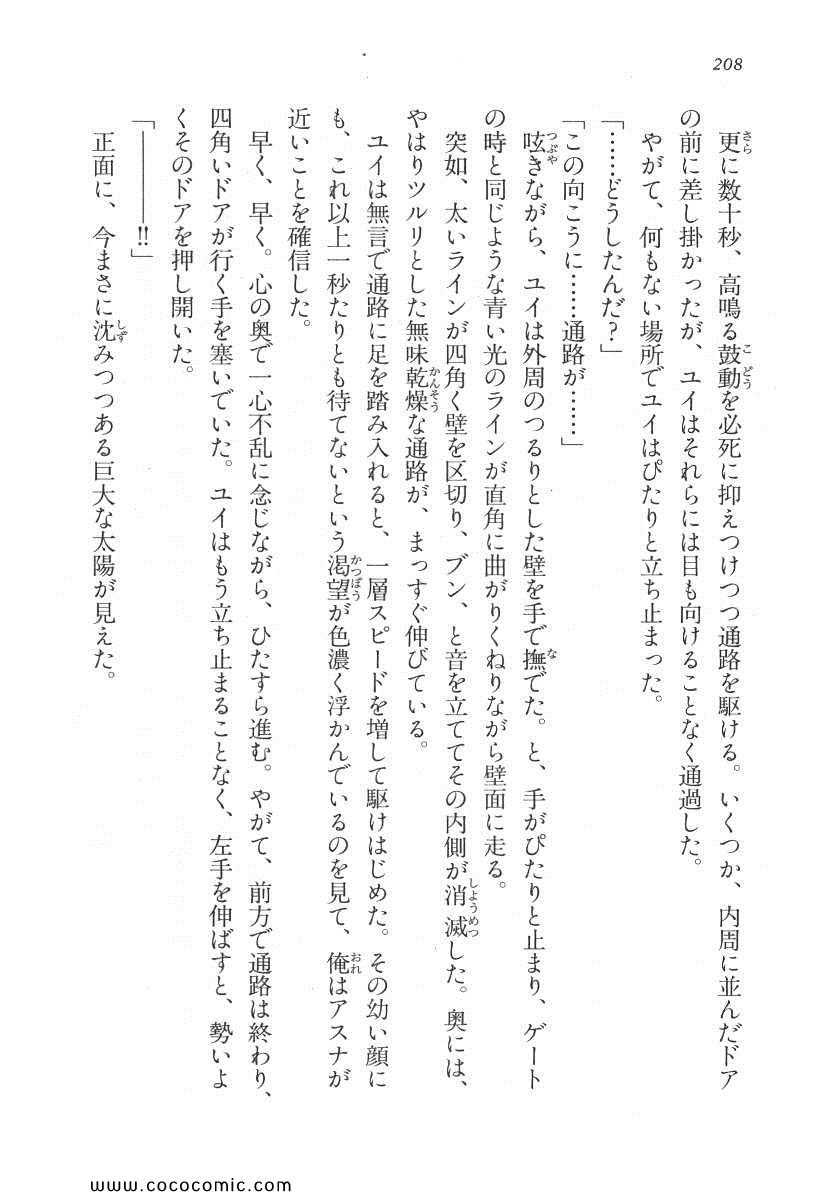 208
更に数十秒、高鳴る鼓動を必死に抑えつけつつ通路を駆ける。いくつか、内周に並んだドア
の前に差し掛かったが、ユイはそれらには目も向けることなく通過した。
やがて、何もない場所でユイはぴたりと立ち止まった。
「……どうしたんだ?」
「この向こうに……通路が……」
呟きながら、ユイは外周のつるりとした壁を手で撫でた。と、手がぴたりと止まり、ゲート
の時と同じような青い光のラインが直角に曲がりくねりながら壁面に走る。
突如、太いラインが四角く壁を区切り、ブン、と音を立ててその内側が消滅した。奥には、
やはりツルリとした無味乾燥な通路が、まっすぐ伸びている。
ユイは無言で通路に足を踏み入れると、一層スピードを増して駆けはじめた。その幼い顔に
も、これ以上一秒たりとも待てないという渇望が色濃く浮かんでいるのを見て、俺はアスナが
近いことを確信した。
早く、早く。心の奥で一心不乱に念じながら、ひたすら進む。やがて、前方で通路は終わり、
四角いドアが行く手を塞いでいた。ユイはもう立ち止まることなく、左手を伸ばすと、勢いよ
くそのドアを押し開いた。
「————!!」
正面に、今まさに沈みつつある巨大な太陽が見えた。
www.cococomic.com/